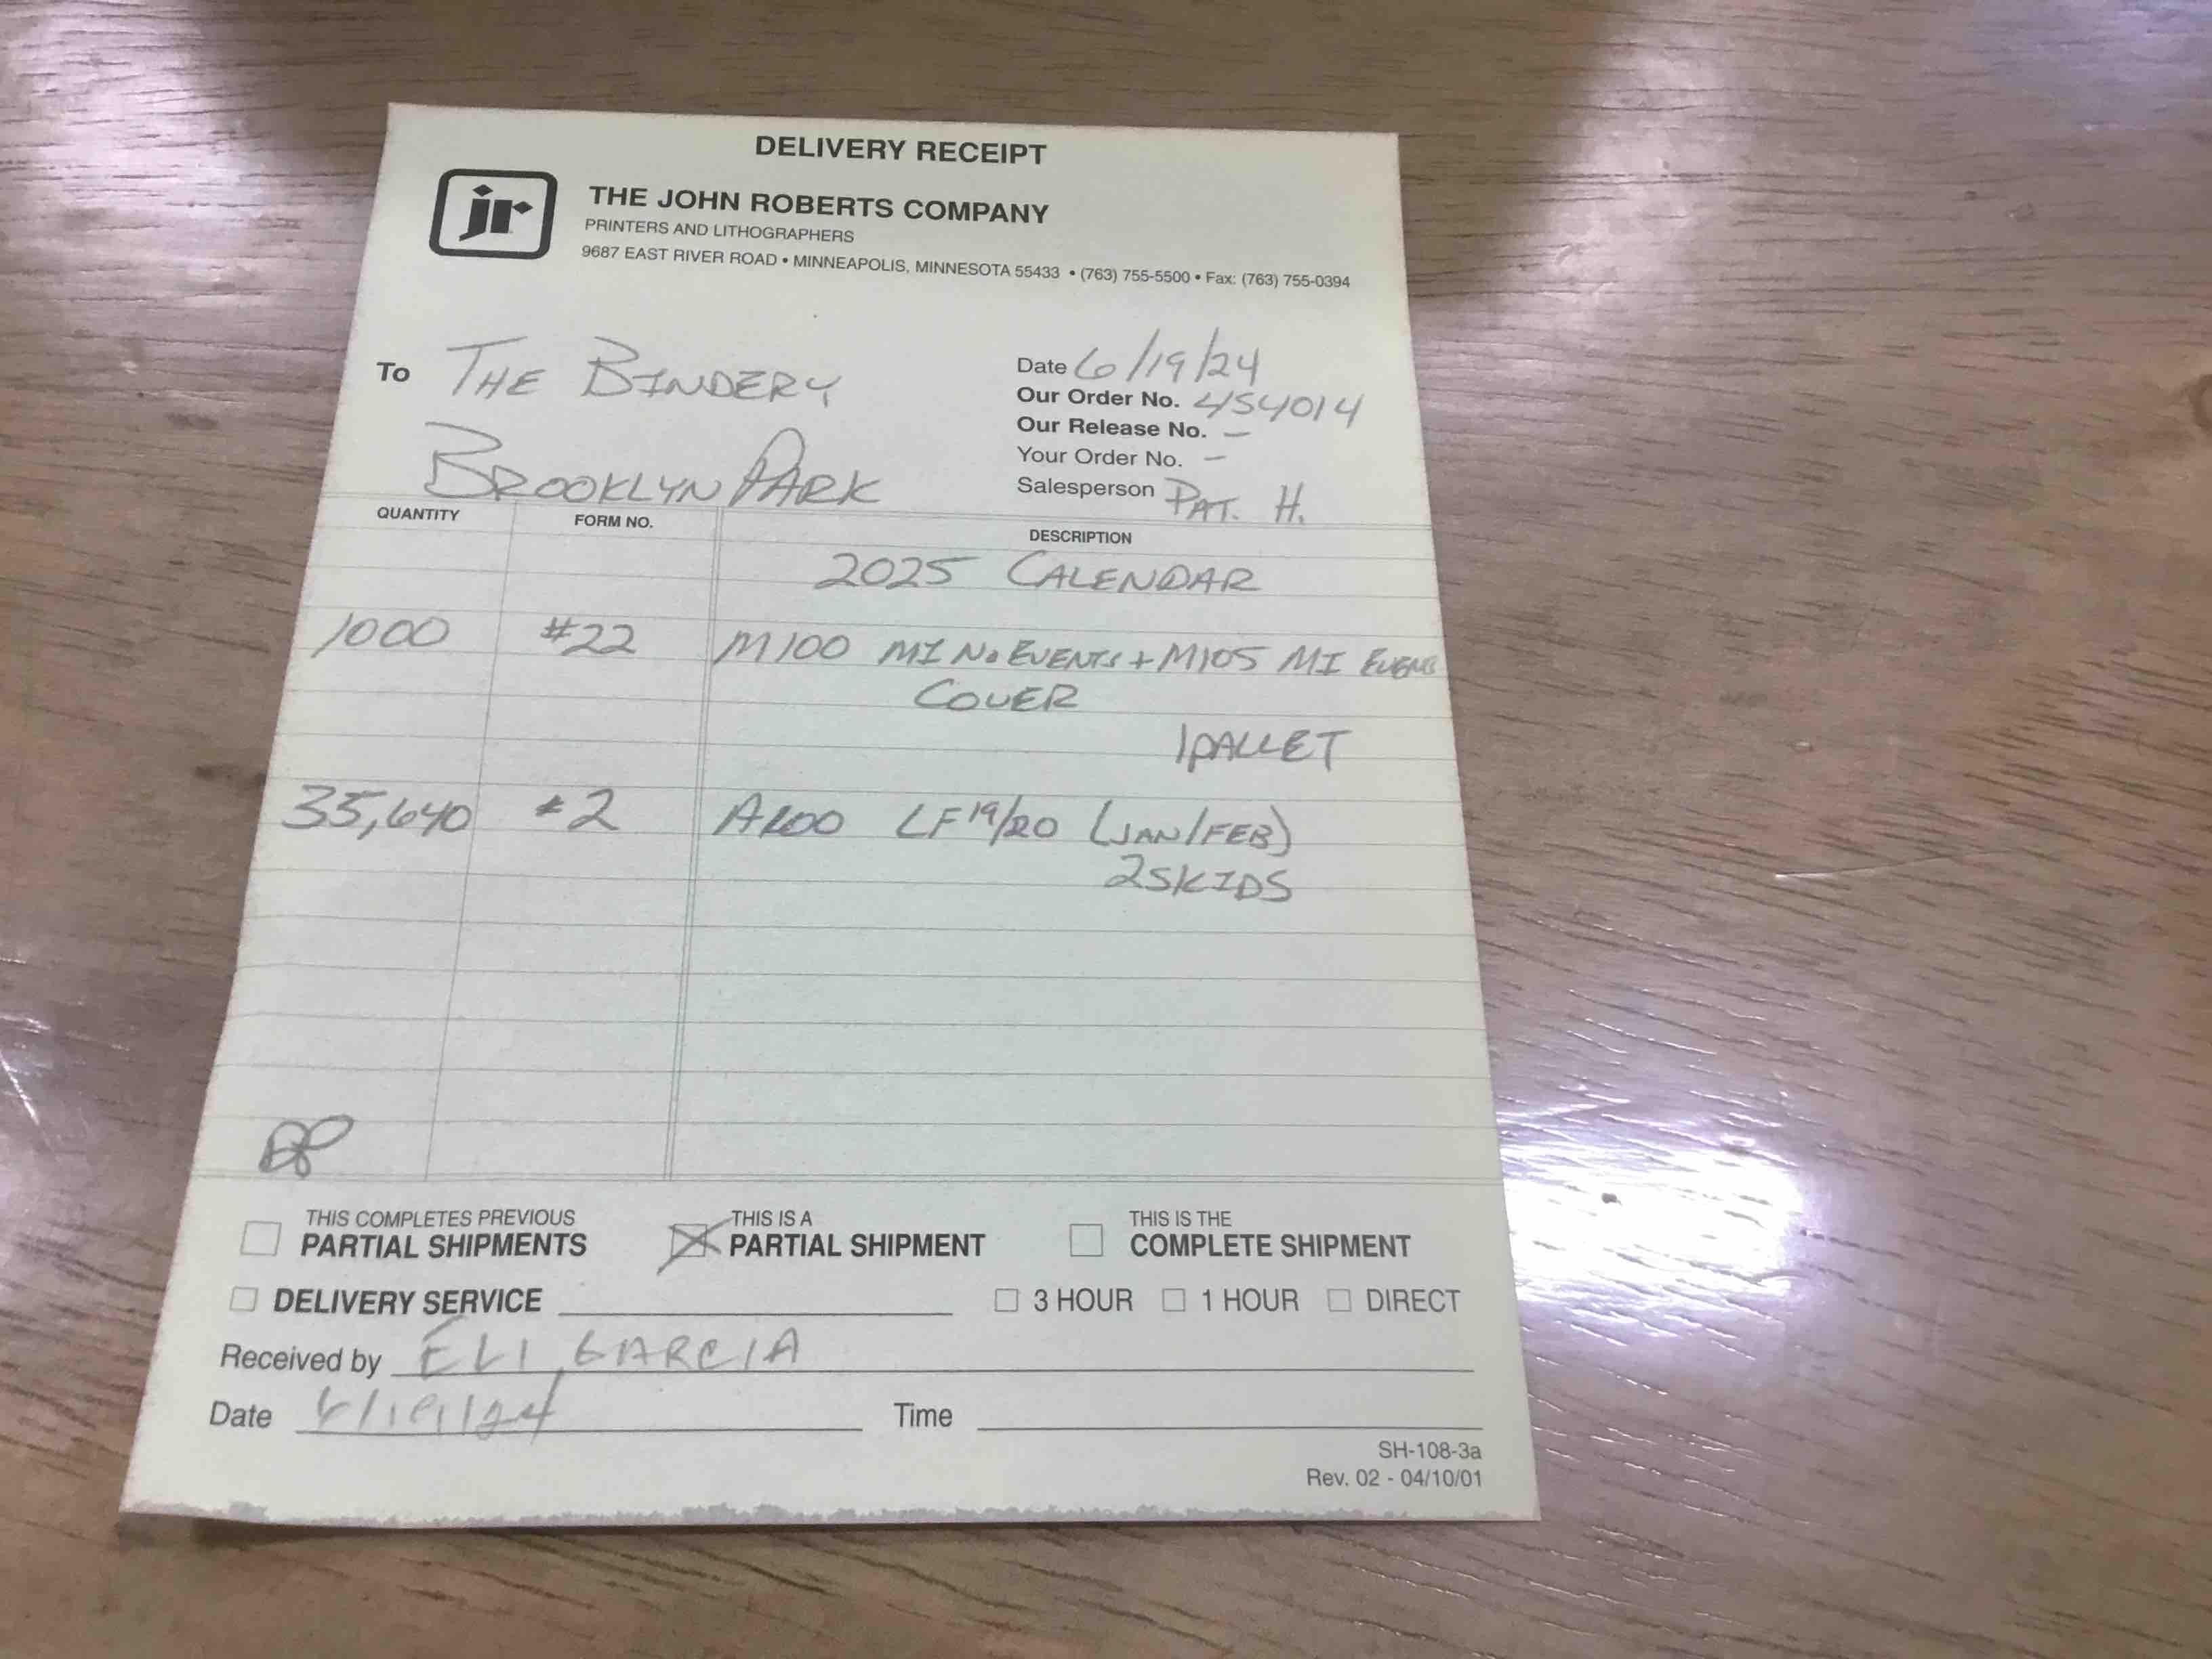 DELIVERY RECEIPT
jr
THE JOHN ROBERTS COMPANY
PRINTERS AND LITHOGRAPHERS
9687 EAST RIVER ROAD • MINNEAPOLIS, MINNESOTA 55433 • (763) 755-5500 • Fax: (763) 755-0394
To THE BINDERY
BROOKLYN PARK
Date 6/19/24
Our Order No. 454014
Our Release No. –
Your Order No. –
Salesperson PAT. H.
QUANTITY FORM NO. DESCRIPTION
2025 CALENDAR
1000 #22 M100 MI NO EVENTS + M105 MI EVENTS
COVER
1 PALLET
35,640 #2 A100 LF 19/20 (JAN/FEB)
2 SKIDS
THIS COMPLETES PREVIOUS
PARTIAL SHIPMENTS
THIS IS A
PARTIAL SHIPMENT
THIS IS THE
COMPLETE SHIPMENT
DELIVERY SERVICE 3 HOUR 1 HOUR DIRECT
Received by ELI GARCIA
Date 6/19/24 Time
SH-108-3a
Rev. 02 - 04/10/01